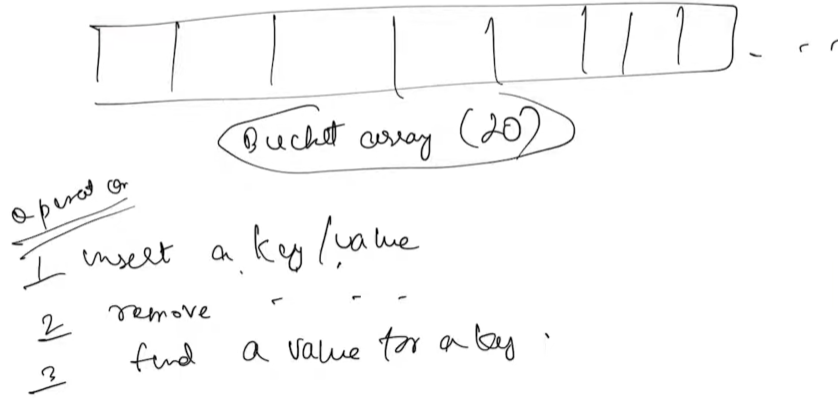 Bucket array (20)
operation
1 insert a key/value
2 remove " " "
3 find a value for a key.